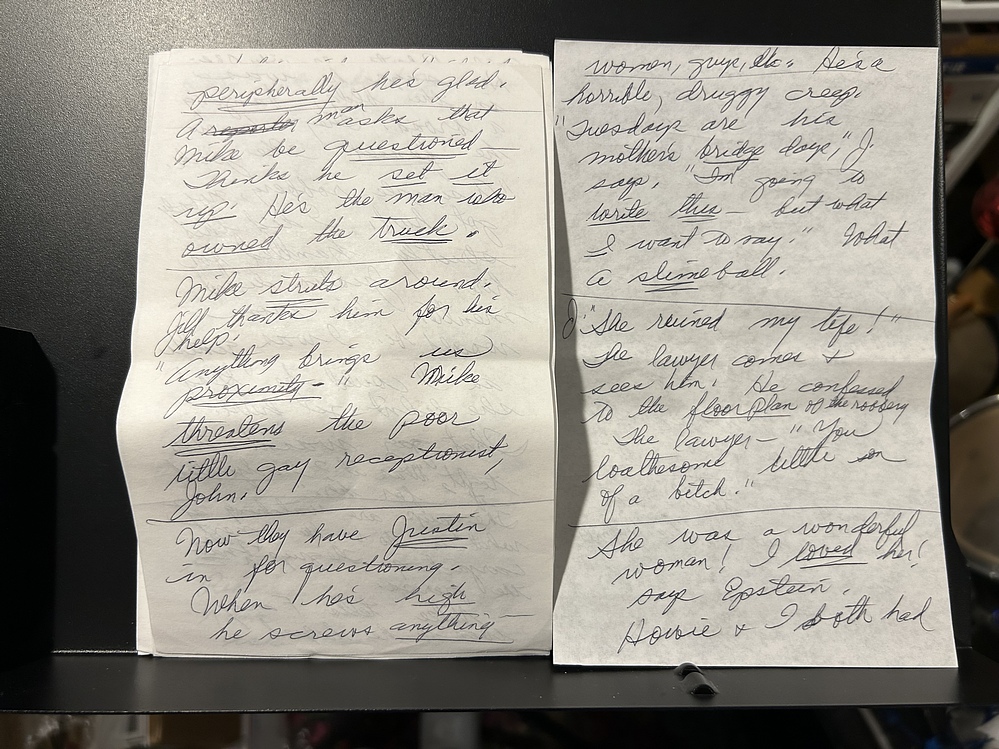 peripherally he's glad.
A reporter man asks that
Mike be questioned —
Thinks he set it
up. He's the man who
owned the truck.
Mike struts around.
Jill thanks him for his
help.
"Anything brings us
proximity — " Mike
threatens the poor
little gay receptionist,
John.
Now they have Justin
in for questioning.
When he's high
he screws anything —
women, guys, etc. He's a
horrible, druggy creep.
"Tuesdays are his
mother's bridge days," J.
says. "I'm going to
write this — but what
I want to say." What
a slimeball.
J: "She ruined my life!"
The lawyer comes &
sees him. He confessed
to the floorplan of the robbery
The lawyer — "You
loathesome little son
of a bitch."
She was a wonderful
woman! I loved her!
says Epstein.
Howie & I both had